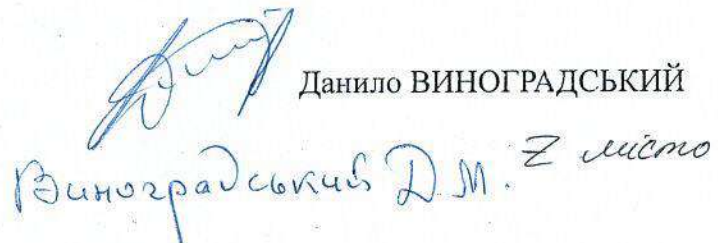 Данило ВИНОГРАДСЬКИЙ
Виноградський Д.М. 2 місто